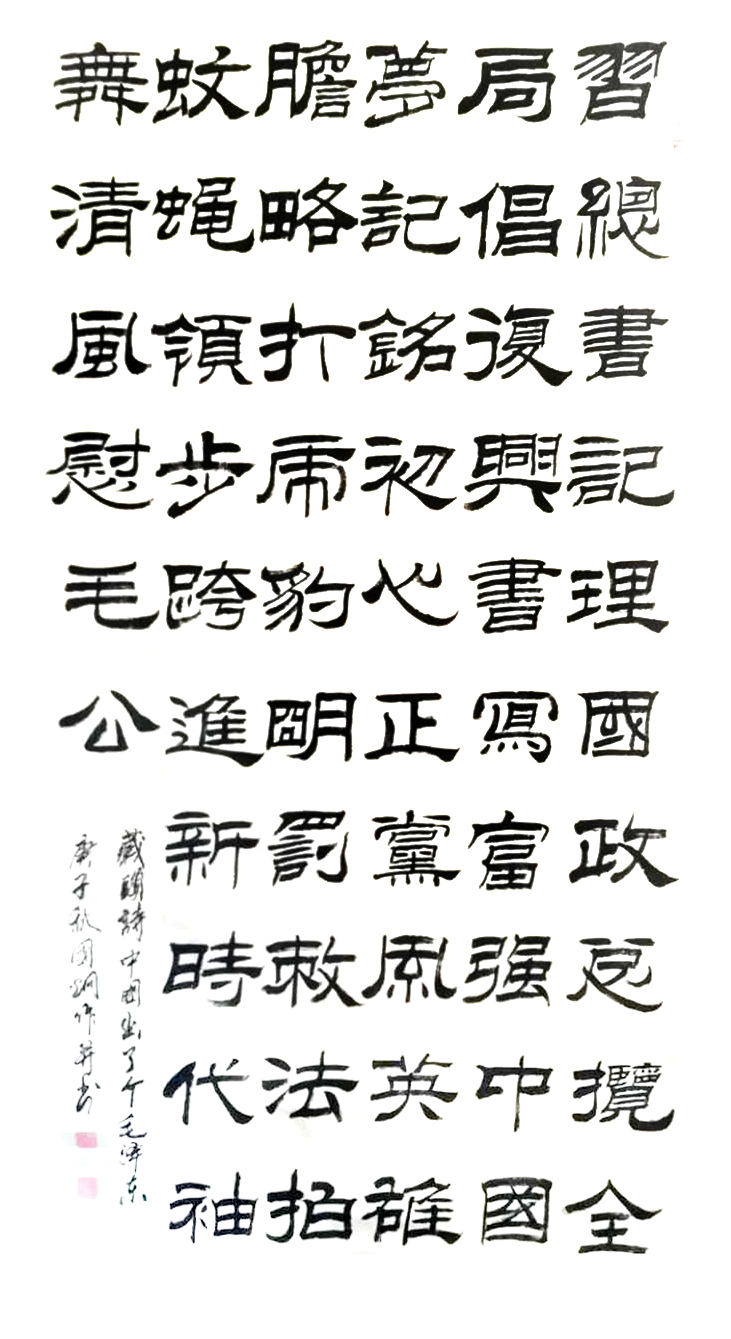 習總書記理國政總攬全
局倡復興書寫富强中國
夢記銘初心正黨風英雄
膽略打虎豹明罰敕法拍
蚊蝇領步跨進新時代袖
舞清風慰毛公
藏頭詩中國出了个毛泽东
庚子秋國炯作并书